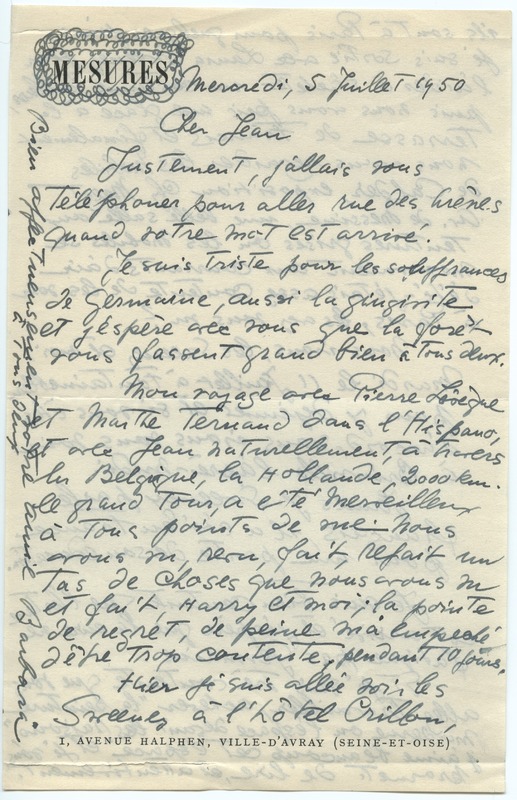 MESURES
Mercredi, 5 Juillet 1950
Cher Jean
Justement, j'allais vous
téléphoner pour aller rue des Arènes
quand votre mot est arrivé.
Je suis triste pour les souffrances
de Germaine, aussi la gingivite
et j'éspère avec vous que la forêt
vous fassent grand bien à tous deux.
Mon voyage avec Pierre
et Marthe Fernand dans l'Hispano,
et avec Jean naturellement, à travers
la Belgique, la Hollande, 2000 km.
le grand Tour, a été merveilleux
à tous points de vue. Nous
avons vu, revu, fait, refait un
tas de choses que nous avons vu
et fait, Harry et moi; la pointe
de regret, de peine m'a empeché
d'être trop contente, pendant 10 jours.
Hier je suis allée voir les
Sweeney à l'hôtel Crillon,
1, AVENUE HALPHEN, VILLE-D'AVRAY (SEINE-ET-OISE)
Bien affectueusement votre amie Barbara
à vous deux